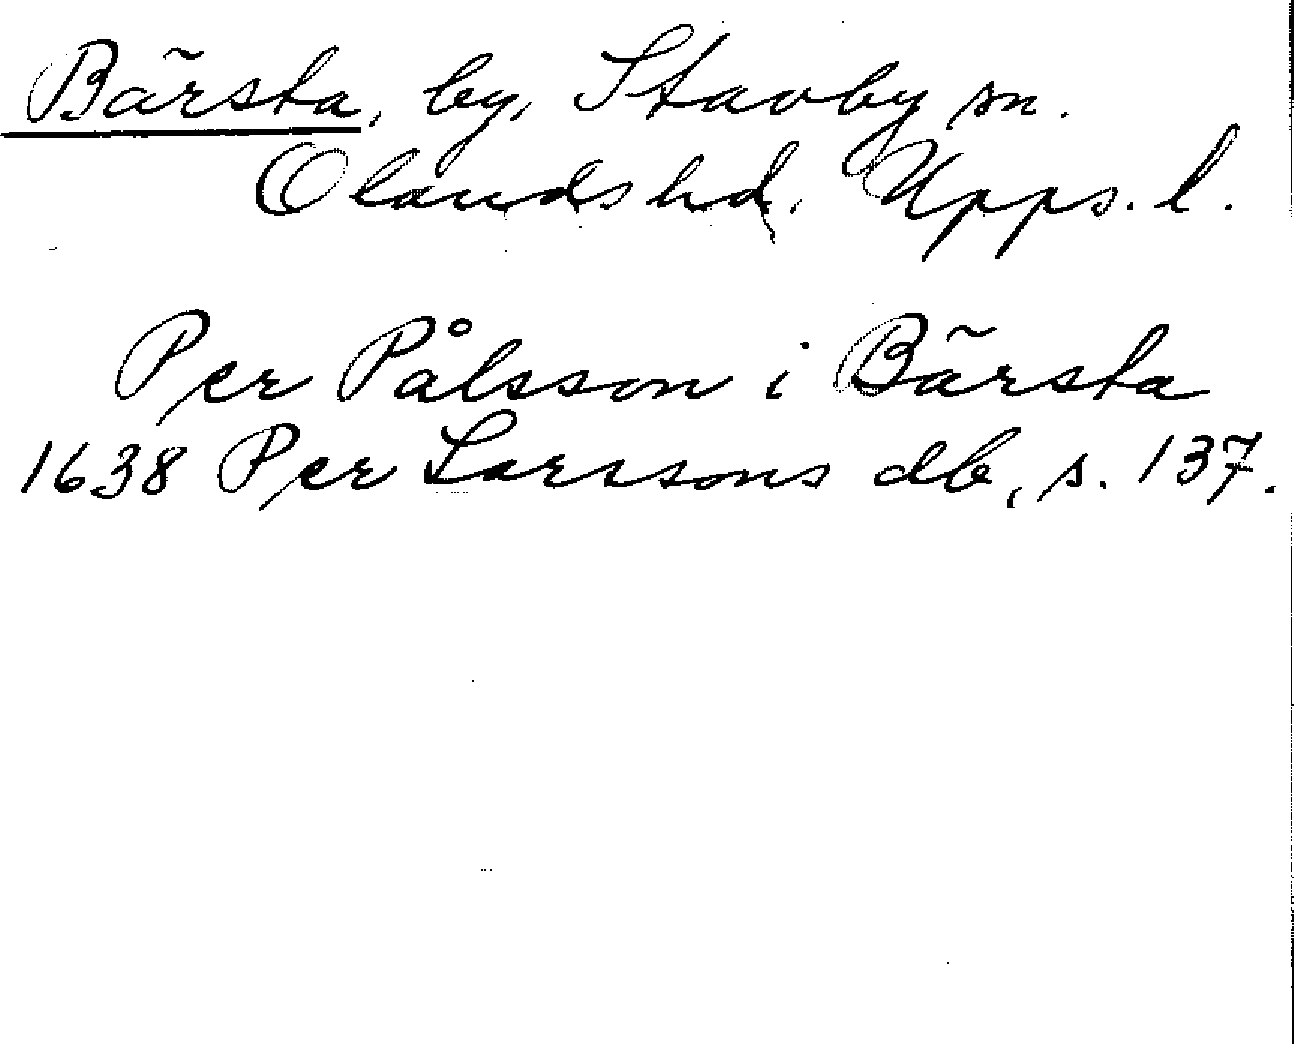 Bärsta, by, Stavby sn.
Olands hd, Upps. l.
Per Pålsson i Bärsta
1638 Per Larssons db, s. 137.